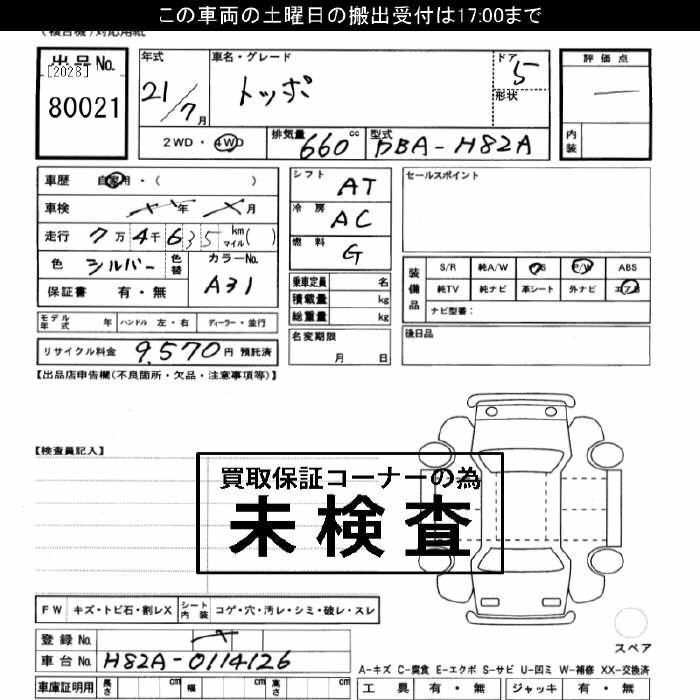 この車両の土曜日の搬出受付は17:00まで
(複合機)対応用紙
出品No. [2028] 80021
年式 21/7月
車名・グレード トッポ
ドア 5 形状
評価点 —
内装
2WD・4WD 排気量 660cc 型式 DBA-H82A
車歴 自家用・( )
車検 年 月
走行 7万4千635 km マイル( )
色 シルバー 色替 カラーNo. A31
保証書 有・無
シフト AT
冷房 AC
燃料 G
乗車定員 名
積載量 kg
総重量 kg
セールスポイント
装備品 S/R 純A/W P/S P/W ABS
純TV 純ナビ 革シート 外ナビ エアB
ナビ型番:
モデル年式 年 ハンドル 左・右 ディーラー・並行
名変期限 月 日
後日品
リサイクル料金 9,570円 預託済
【出品店申告欄(不良箇所・欠品・注意事項等)】
【検査員記入】
買取保証コーナーの為
未検査
FW キズ・トビ石・割レX シート内装 コゲ・穴・汚レ・シミ・破レ・スレ
スペア
登録No.
車台No. H82A-0114126
A-キズ C-腐食 E-エクボ S-サビ U-凹ミ W-補修 XX-交換済
車庫証明用 長さ cm 幅 cm 高さ cm
工具 有・無 ジャッキ 有・無